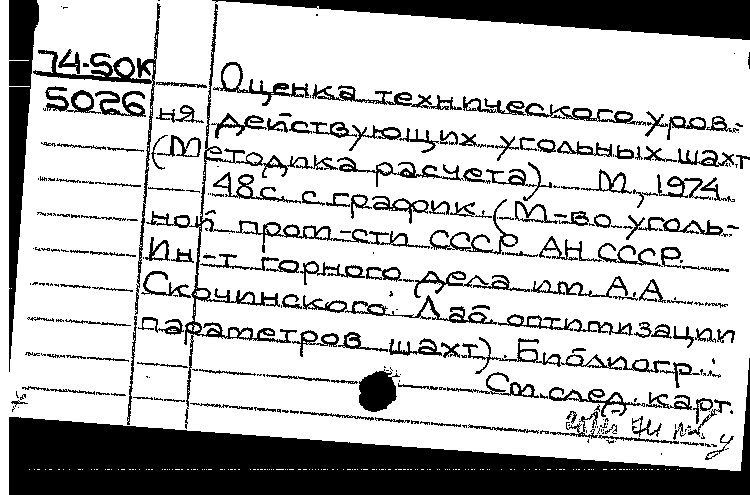 74-50К
5026
Оценка технического уров-
ня действующих угольных шахт
(Методика расчета). М., 1974.
48 с. с график. (М-во уголь-
ной пром-сти СССР. АН СССР.
Ин-т горного дела им. А.А.
Скочинского. Лаб оптимизации
параметров шахт). Библиогр.:
См. след. карт.